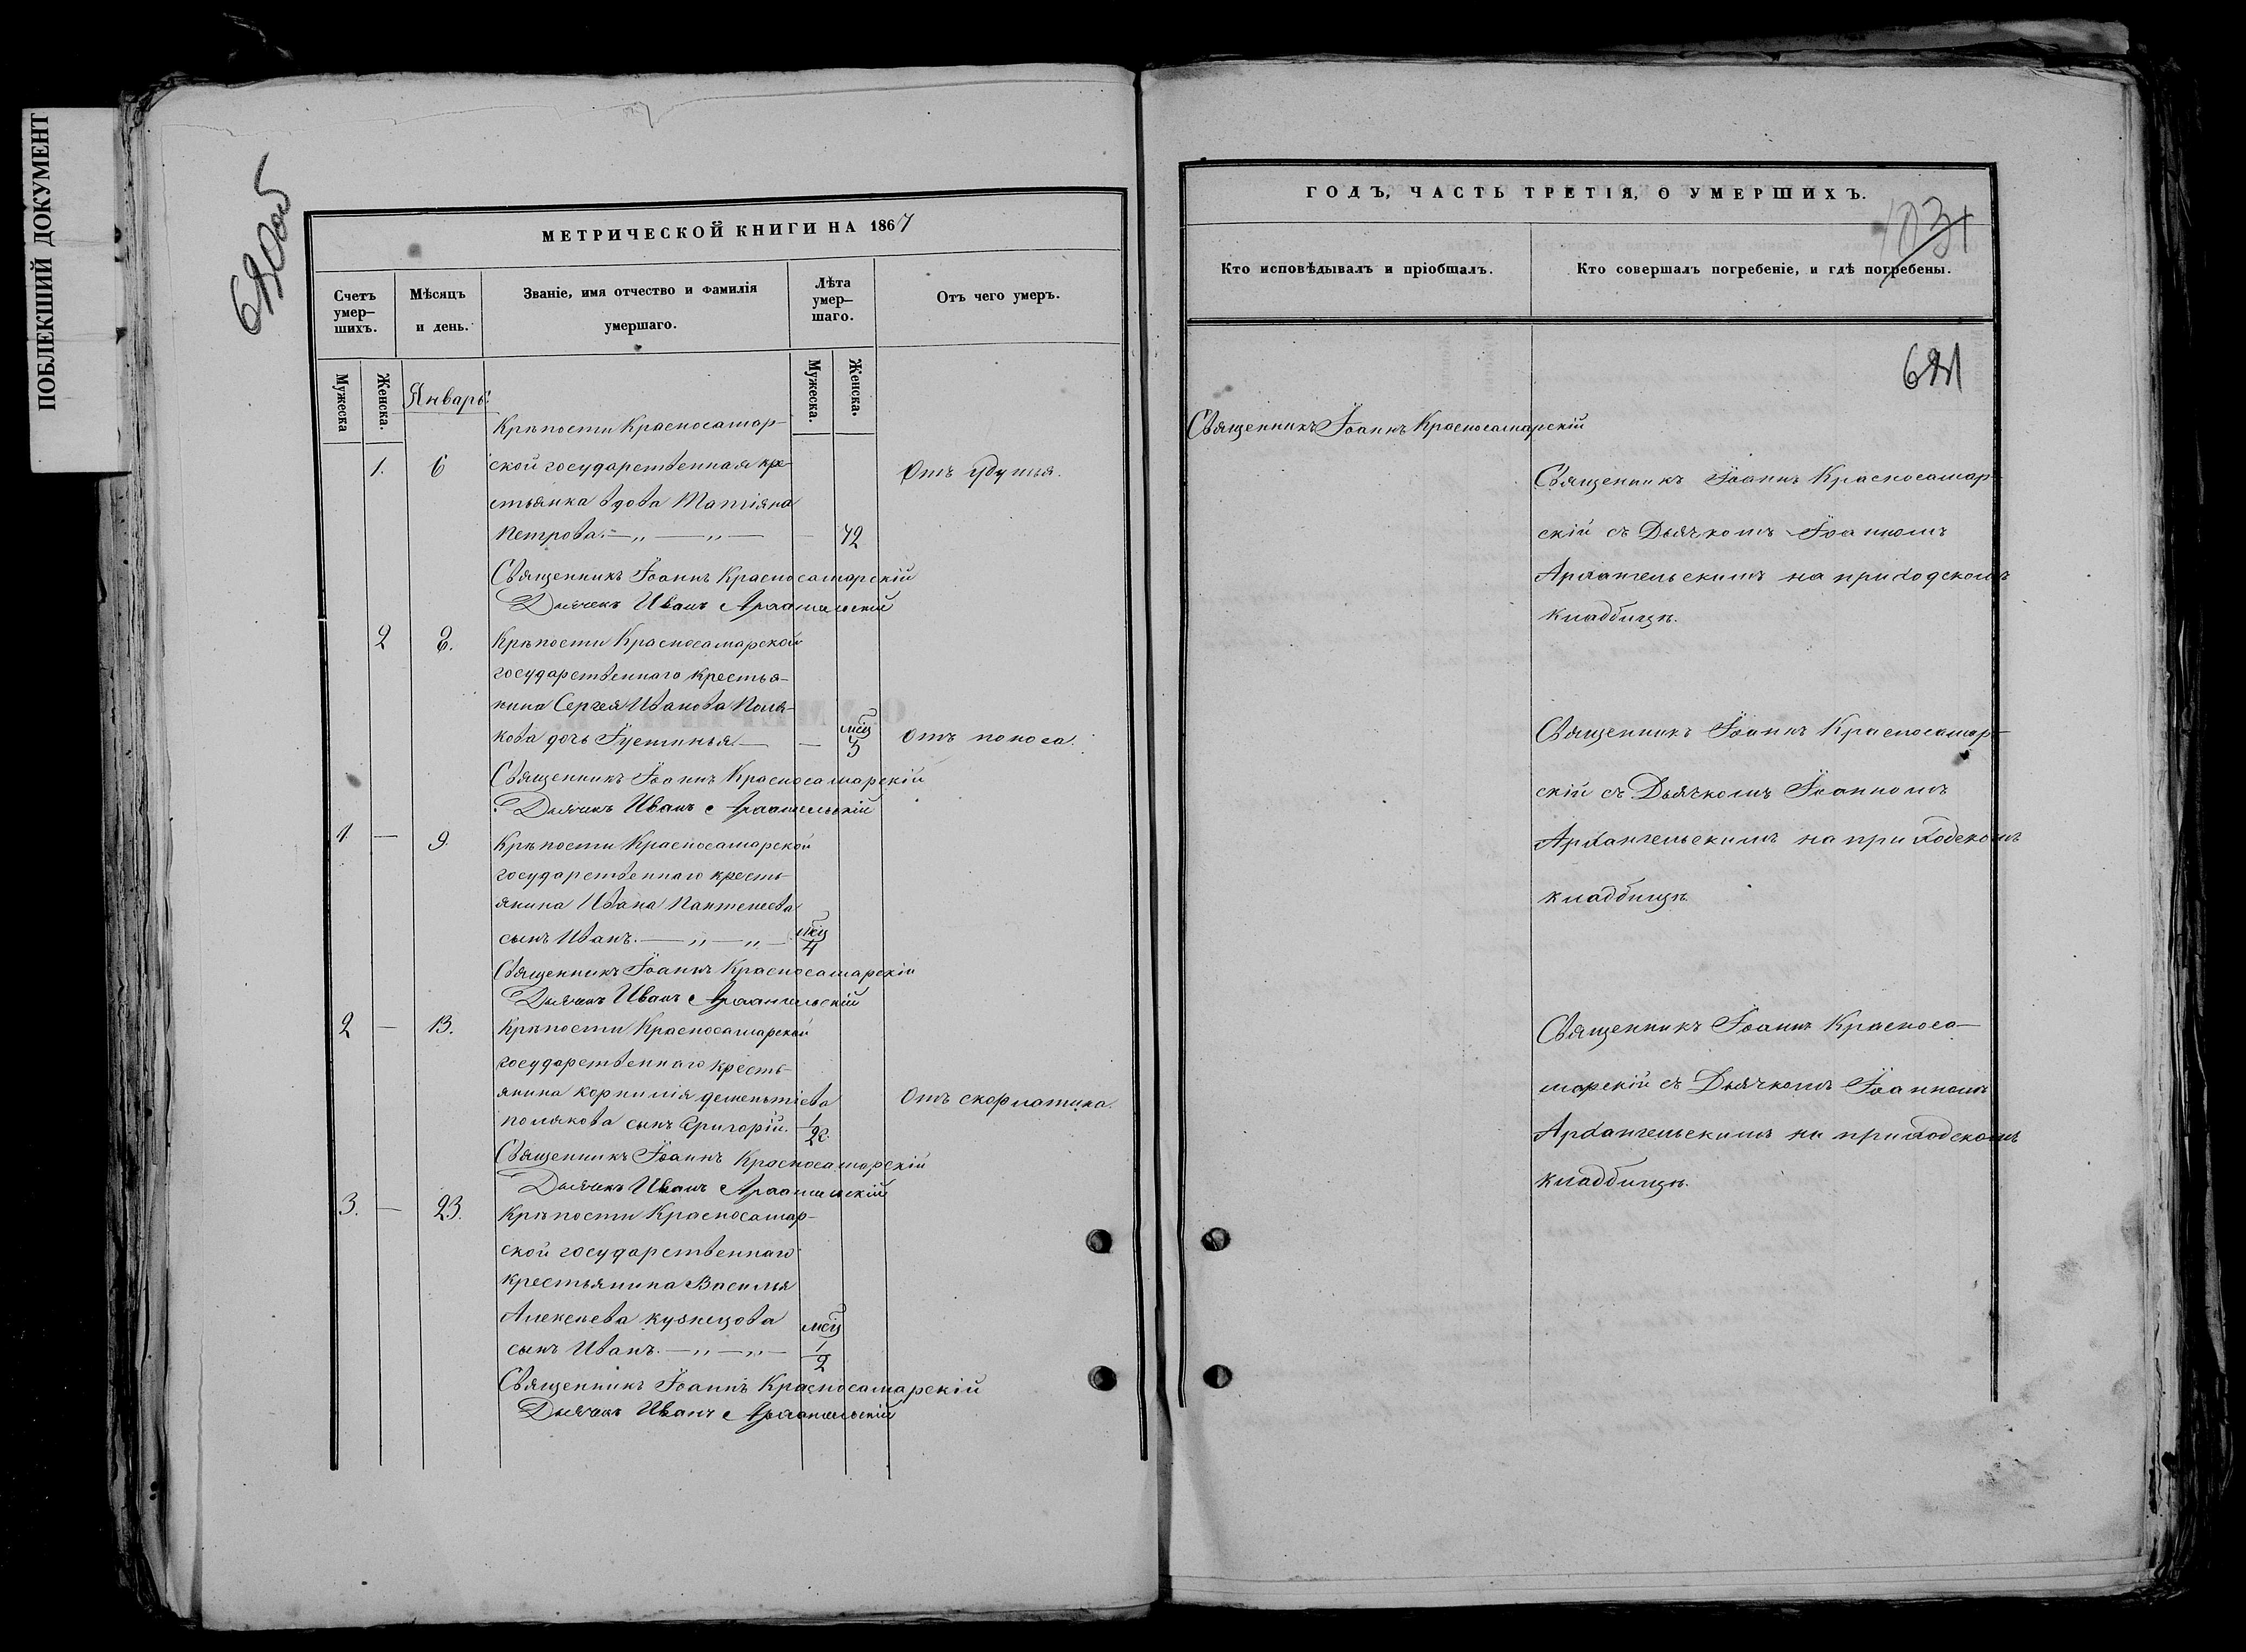 ПОБЛЕКШИЙ ДОКУМЕНТ
МЕТРИЧЕСКОЙ КНИГИ НА 1867
Счетъ умер–шихъ.
Мѣсяцъ и день.
Званіе, имя отчество и фамилія умершаго.
Лѣта умер–шаго.
Отъ чего умеръ.
Мужеска
Женска.
Мужеска.
Женска.
Январь
Крѣпости Красносамар–
1. 6 ской государственная кре– Отъ удушья.
стьянка вдова Татіяна
Петрова. — „ — „ — — 72
Священникъ Іоаннъ Красносамарскій
Дьячекъ Иванъ Архангельскій
2 8. Крѣпости Красносамарской
государственнаго крестья–
нина Сергея Иванова Поля–
кова дочь Іустинья. — — мсц 3 Отъ поноса.
Священникъ Іоаннъ Красносамарскій
Дьячекъ Иванъ Архангельскій
1. — 9. Крѣпости Красносамарской
государственнаго кресть–
янина Ивана
сынъ Иванъ. — „ — „ — мсц 4
Священникъ Іоаннъ Красносамарскій
Дьячекъ Иванъ Архангельскій
2 — 13. Крѣпости Красносамарской
государственнаго кресть–
янина Корнилія Дементіева Отъ скорлатина.
Полякова сынъ Григорій.
Священникъ Іоаннъ Красносамарскій
Дьячекъ Иванъ Архангельскій
3. — 23. Крѣпости Красносамар–
ской государственнаго
крестьянина Василья
Алексеева Кузнецова
сынъ Иванъ. — „ — „ — мсц 1/2
Священникъ Іоаннъ Красносамарскій
Дьячекъ Иванъ Архангельскій
ГОДЪ, ЧАСТЬ ТРЕТІЯ, О УМЕРШИХЪ.
Кто исповѣдывалъ и пріобщалъ.
Кто совершалъ погребеніе, и гдѣ погребены.
Священникъ Іоаннъ Красносамарскій
Священникъ Іоаннъ Красносамар–
скій съ Дьячкомъ Іоанномъ
Архангельскимъ на приходскомъ
кладбищѣ.
Священникъ Іоаннъ Красносамар–
скій съ Дьячкомъ Іоанномъ
Архангельскимъ на приходскомъ
кладбищѣ.
Священникъ Іоаннъ Красноса–
марскій съ Дьячкомъ Іоанномъ
Архангельскимъ на приходскомъ
кладбищѣ.